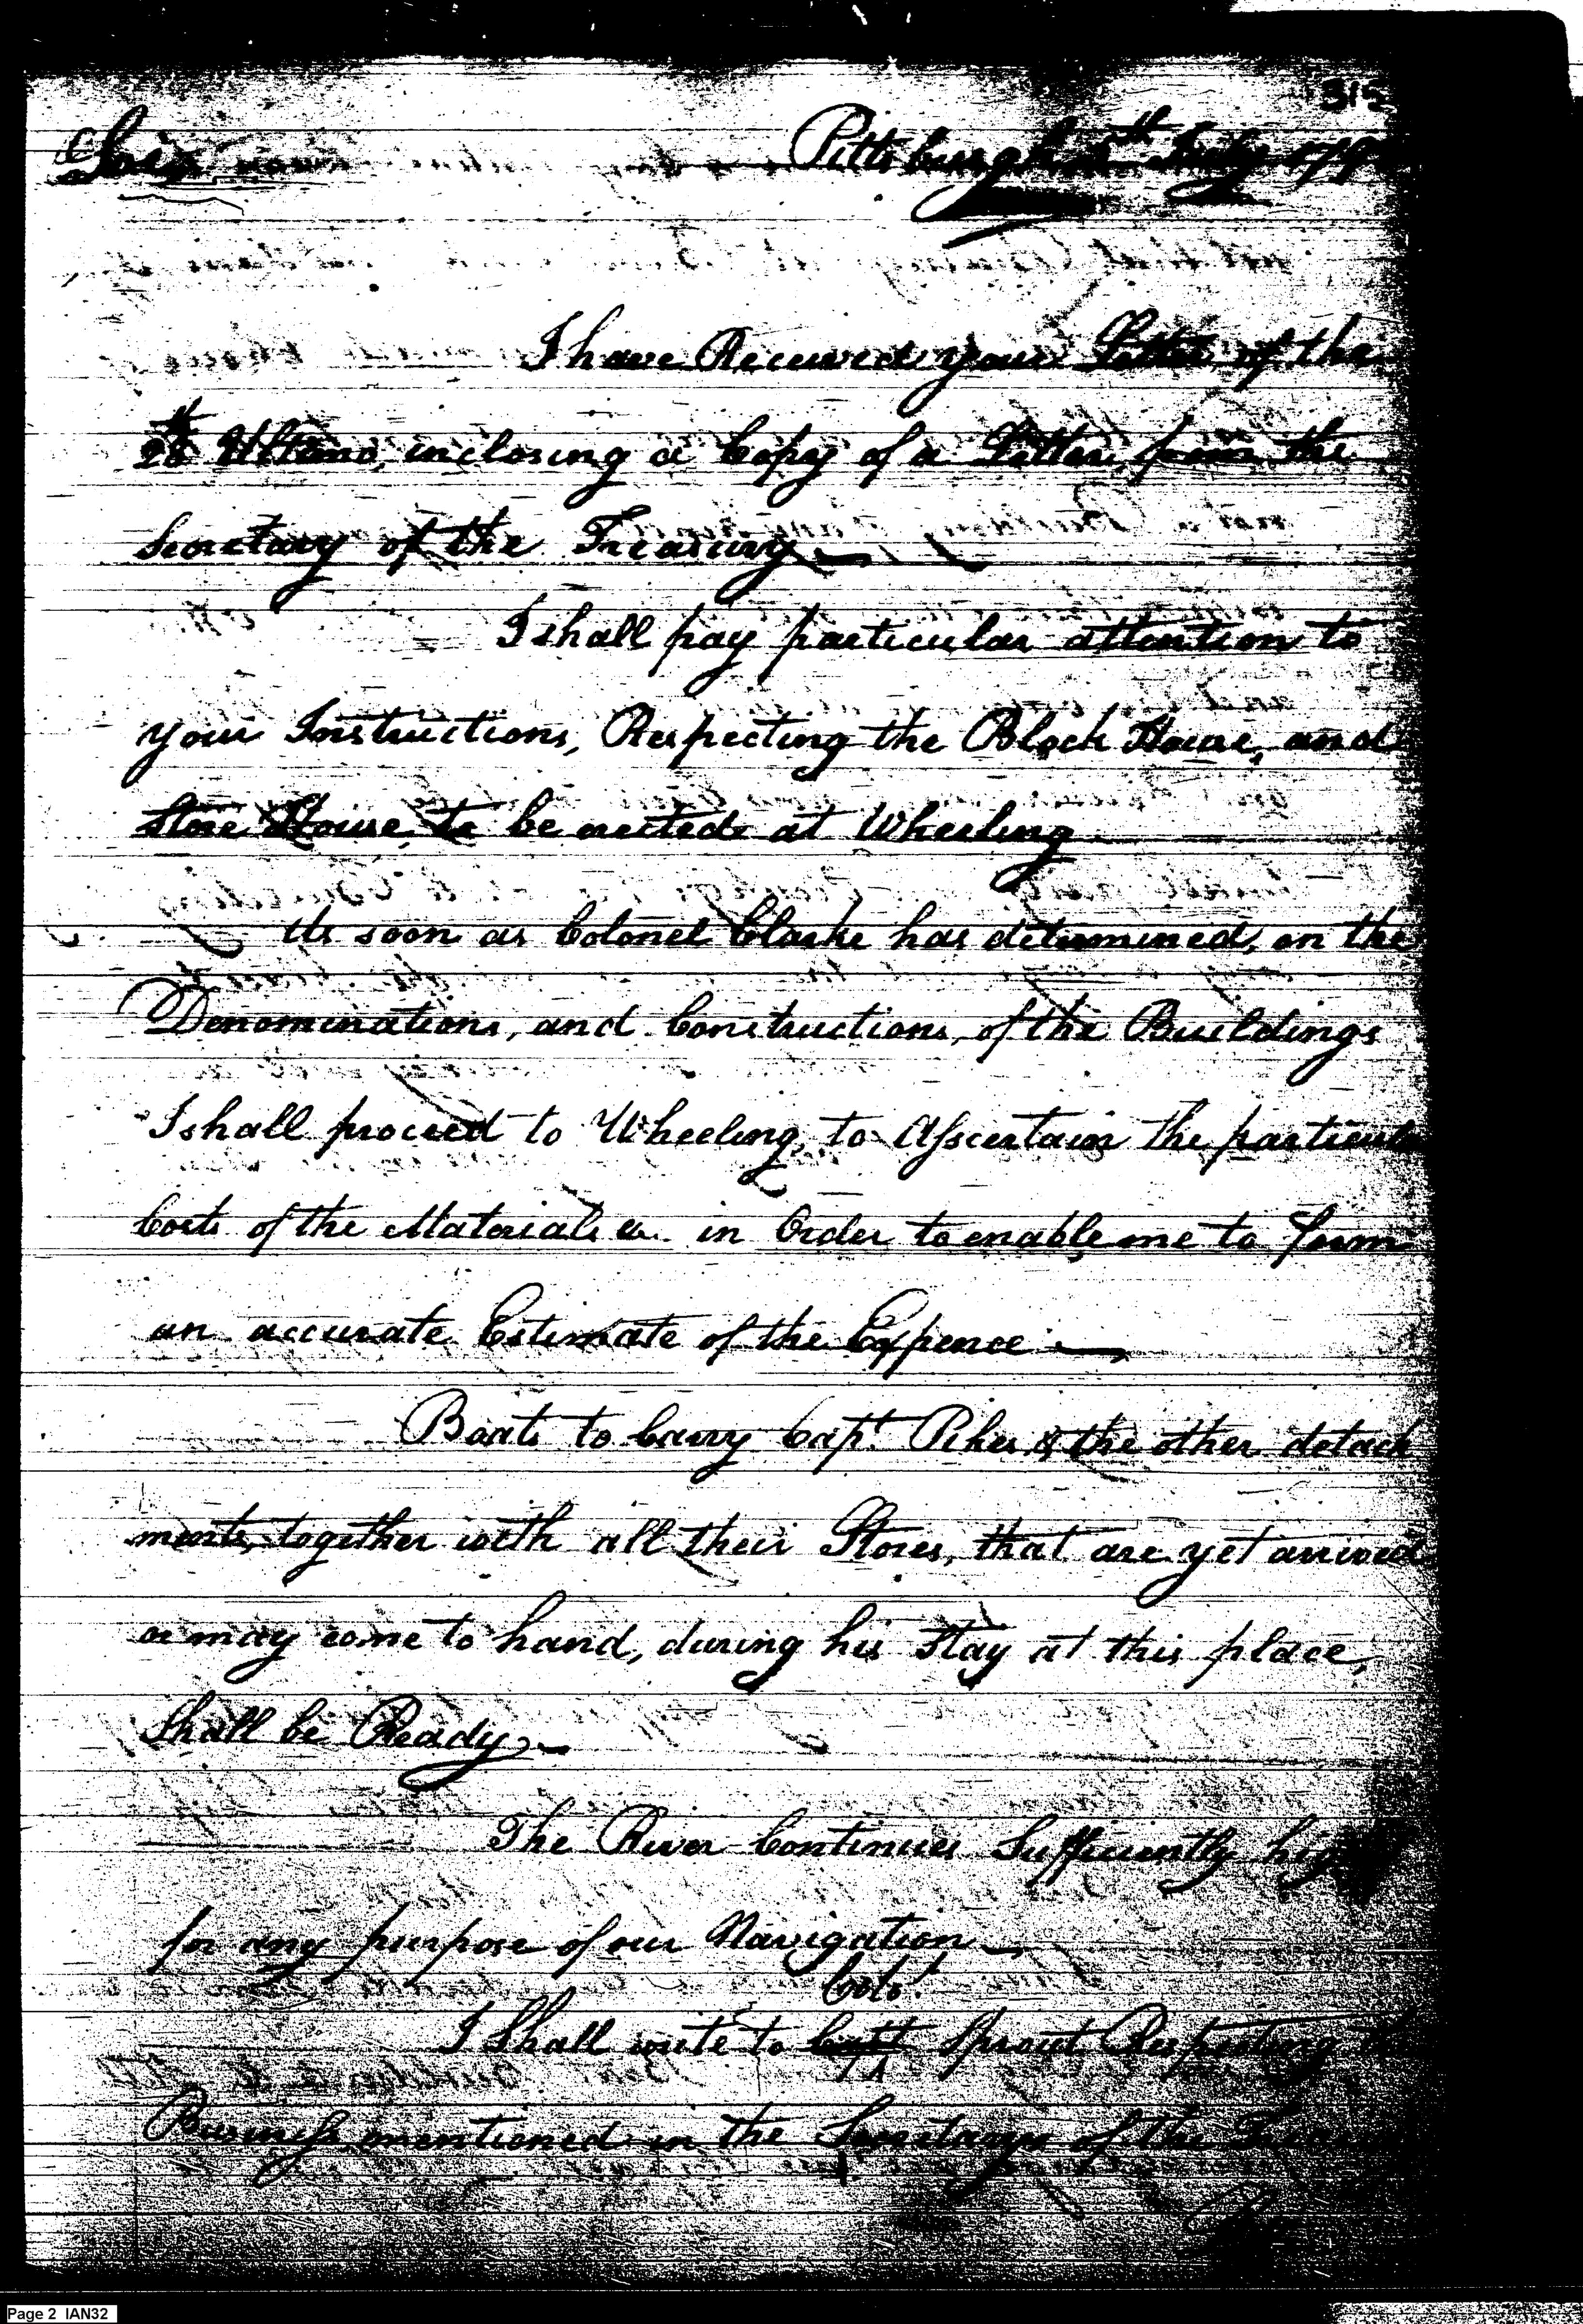 315
Sir Pittsburgh 5th July 179
I have Received your Letter of the
28th Ultimo, inclosing a Copy of a Letter, from the
Secretary of the Treasury
I shall pay particular attention to
your Instructions, Respecting the Block House, and
Store House, to be erected at Wheeling
As soon as Colonel Clarke has determined, on the
Denominations, and Constructions, of the Buildings
I shall proceed to Wheeling, to Asscertain the particul
Costs of the Materials &c. in Order to enable me to form
an accurate Estimate of the Expence
Boats to Carry Capt. Pikes & the other detach
ments, together with all their Stores, that are yet arrived
or may come to hand, during his Stay at this place,
Shall be Ready
The River Continues Sufficiently high
for any purpose of our Navigation
Colo.
I Shall write to Capt Sprout Respecting
Business mentioned in the Secretarys of the
Page 2 IAN32